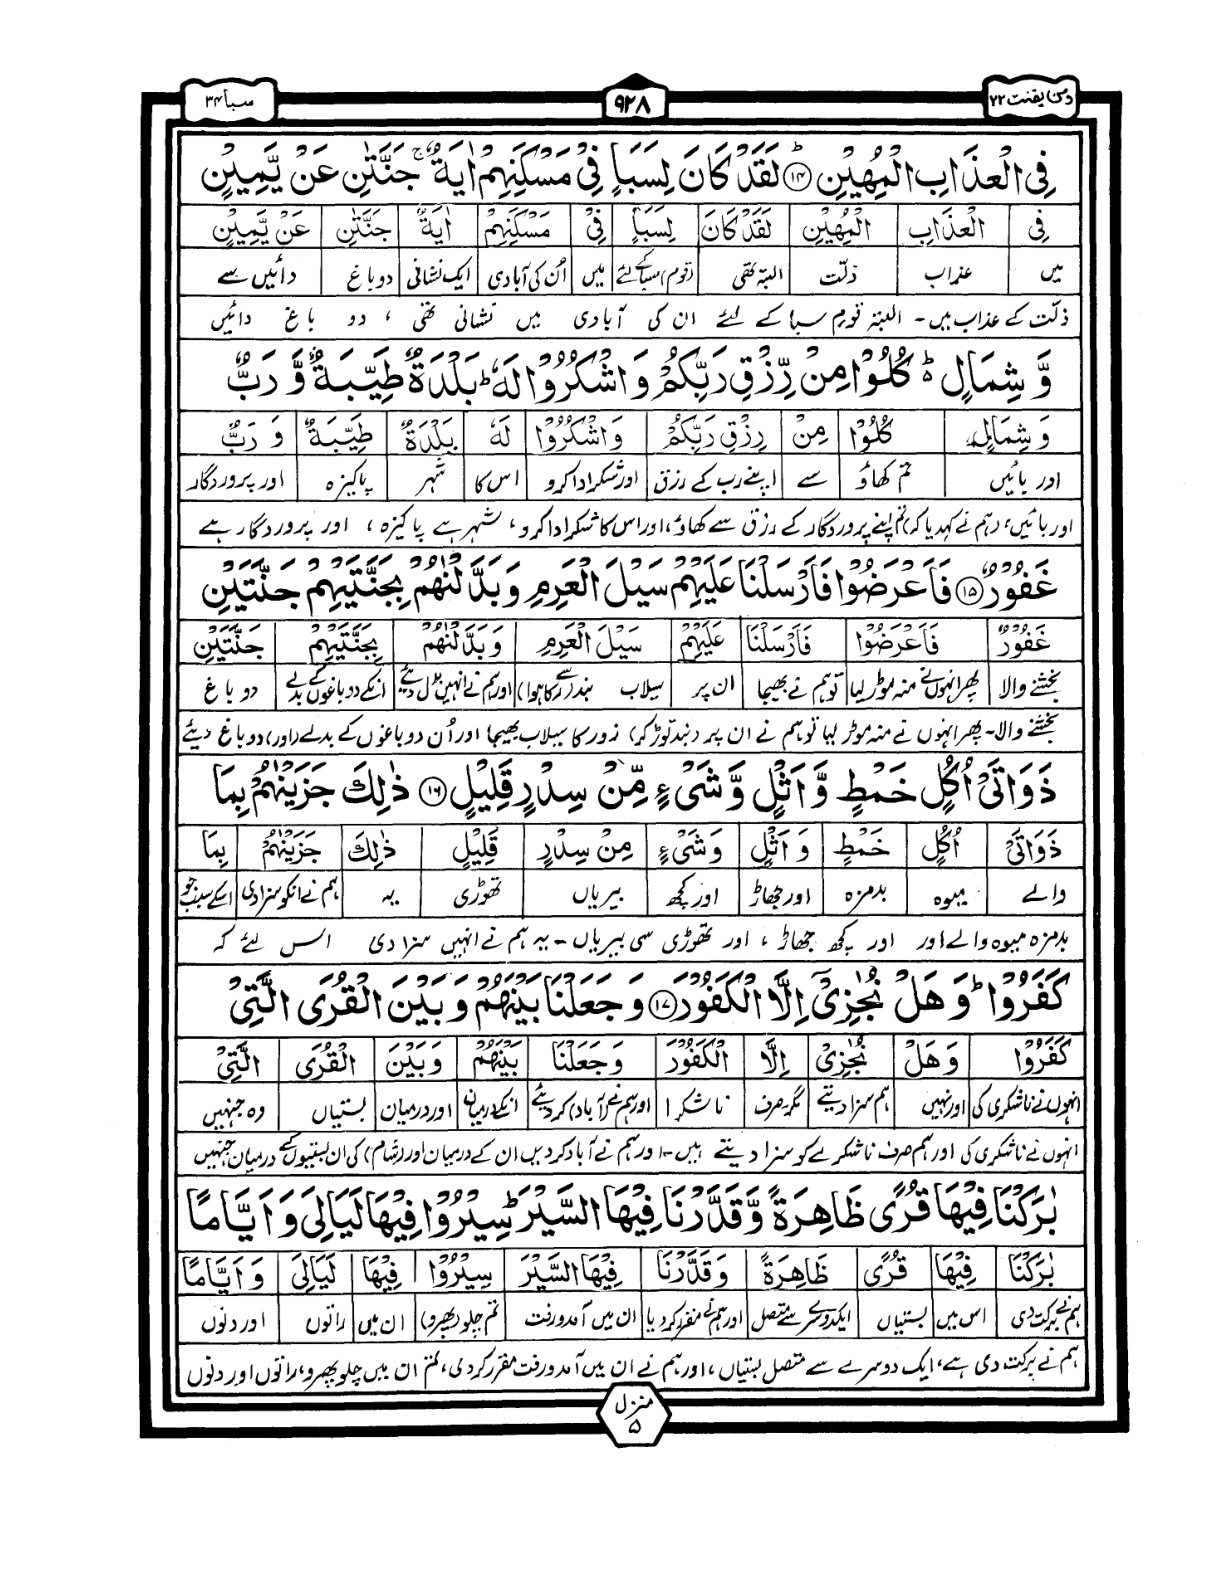 ومن یقنت ۲۲
۹۲۸
سبا ۳۴
فِی الْعَذَابِ الْمُهِیْنِ ﴿۱۴﴾ لَقَدْ كَانَ لِسَبَاٍ فِیْ مَسْكَنِهِمْ اٰیَةٌ ۚ جَنَّتٰنِ عَنْ یَّمِیْنٍ
فِی الْعَذَابِ الْمُهِیْنِ لَقَدْ كَانَ لِسَبَاٍ فِیْ مَسْكَنِهِمْ اٰیَةٌ جَنَّتٰنِ عَنْ یَّمِیْنٍ
میں عذاب ذلّت البتہ تھی (قوم) سبا کے لئے میں اُن کی آبادی ایک نشانی دو باغ دائیں سے
ذلّت کے عذاب میں۔ البتہ قومِ سبا کے لئے ان کی آبادی میں نشانی تھی ، دو باغ دائیں
وَّ شِمَالٍ ؕ كُلُوْا مِنْ رِّزْقِ رَبِّكُمْ وَ اشْكُرُوْا لَهٗ ؕ بَلْدَةٌ طَیِّبَةٌ وَّ رَبٌّ
وَ شِمَالٍ كُلُوْا مِنْ رِزْقِ رَبِّكُمْ وَاشْكُرُوْا لَهٗ بَلْدَةٌ طَیِّبَةٌ وَ رَبٌّ
اور بائیں تم کھاؤ سے اپنے رب کے رزق اور شکر ادا کرو اس کا شہر پاکیزہ اور پروردگار
اور بائیں، (ہم نے کہدیا کہ) تم اپنے پروردگار کے رزق سے کھاؤ، اور اس کا شکر ادا کرو، شہر ہے پاکیزہ ، اور پروردگار ہے
غَفُوْرٌ ﴿۱۵﴾ فَاَعْرَضُوْا فَاَرْسَلْنَا عَلَیْهِمْ سَیْلَ الْعَرِمِ وَ بَدَّلْنٰهُمْ بِجَنَّتَیْهِمْ جَنَّتَیْنِ
غَفُوْرٌ فَاَعْرَضُوْا فَاَرْسَلْنَا عَلَیْهِمْ سَیْلَ الْعَرِمِ وَبَدَّلْنٰهُمْ بِجَنَّتَیْهِمْ جَنَّتَیْنِ
بخشنے والا پھر انہوں نے منہ موڑ لیا تو ہم نے بھیجا ان پر سیلاب بند سے (رکا ہوا) اور ہم نے انہیں بدل دیئے انکے دو باغوں کے بدلے دو باغ
بخشنے والا۔ پھر انہوں نے منہ موڑ لیا تو ہم نے ان پر (بند توڑ کر) زور کا سیلاب بھیجا اور اُن دو باغوں کے بدلے (اور) دو باغ دیئے
ذَوَاتَیْ اُكُلٍ خَمْطٍ وَّ اَثْلٍ وَّ شَیْءٍ مِّنْ سِدْرٍ قَلِیْلٍ ﴿۱۶﴾ ذٰلِكَ جَزَیْنٰهُمْ بِمَا
ذَوَاتَیْ اُكُلٍ خَمْطٍ وَ اَثْلٍ وَشَیْءٍ مِنْ سِدْرٍ قَلِیْلٍ ذٰلِكَ جَزَیْنٰهُمْ بِمَا
والے میوہ بدمزہ اور جھاڑ اور کچھ بیریاں تھوڑی یہ ہم نے انکو سزا دی اسکے سبب جو
بدمزہ میوہ والے اور اور کچھ جھاڑ ، اور تھوڑی سی بیریاں۔ یہ ہم نے انہیں سزا دی اس لئے کہ
كَفَرُوْا ؕ وَ هَلْ نُجٰزِیْۤ اِلَّا الْكَفُوْرَ ﴿۱۷﴾ وَ جَعَلْنَا بَیْنَهُمْ وَ بَیْنَ الْقُرَی الَّتِیْ
كَفَرُوْا وَ هَلْ نُجٰزِیْ اِلَّا الْكَفُوْرَ وَ جَعَلْنَا بَیْنَهُمْ وَ بَیْنَ الْقُرَی الَّتِیْ
انہوں نے ناشکری کی اور نہیں ہم سزا دیتے مگر صرف ناشکرا اور ہم نے (آباد) کر دیئے انکے درمیان اور درمیان بستیاں وہ جنہیں
انہوں نے ناشکری کی اور ہم صرف ناشکرے کو سزا دیتے ہیں۔ اور ہم نے آباد کردیں ان کے درمیان اور (شام) کی ان بستیوں کے درمیان جنہیں
بٰرَكْنَا فِیْهَا قُرًی ظَاهِرَةً وَّ قَدَّرْنَا فِیْهَا السَّیْرَ ؕ سِیْرُوْا فِیْهَا لَیَالِیَ وَ اَیَّامًا
بٰرَكْنَا فِیْهَا قُرًی ظَاهِرَةً وَ قَدَّرْنَا فِیْهَا السَّیْرَ سِیْرُوْا فِیْهَا لَیَالِیَ وَ اَیَّامًا
ہم نے برکت دی اس میں بستیاں ایک دوسرے سے متصل اور ہم نے مقرر کر دیا ان میں آمد و رفت تم چلو (پھرو) ان میں راتوں اور دنوں
ہم نے برکت دی ہے، ایک دوسرے سے متصل بستیاں ، اور ہم نے ان میں آمد و رفت مقرر کر دی، تم ان میں چلو پھرو، راتوں اور دنوں
منزل
۵